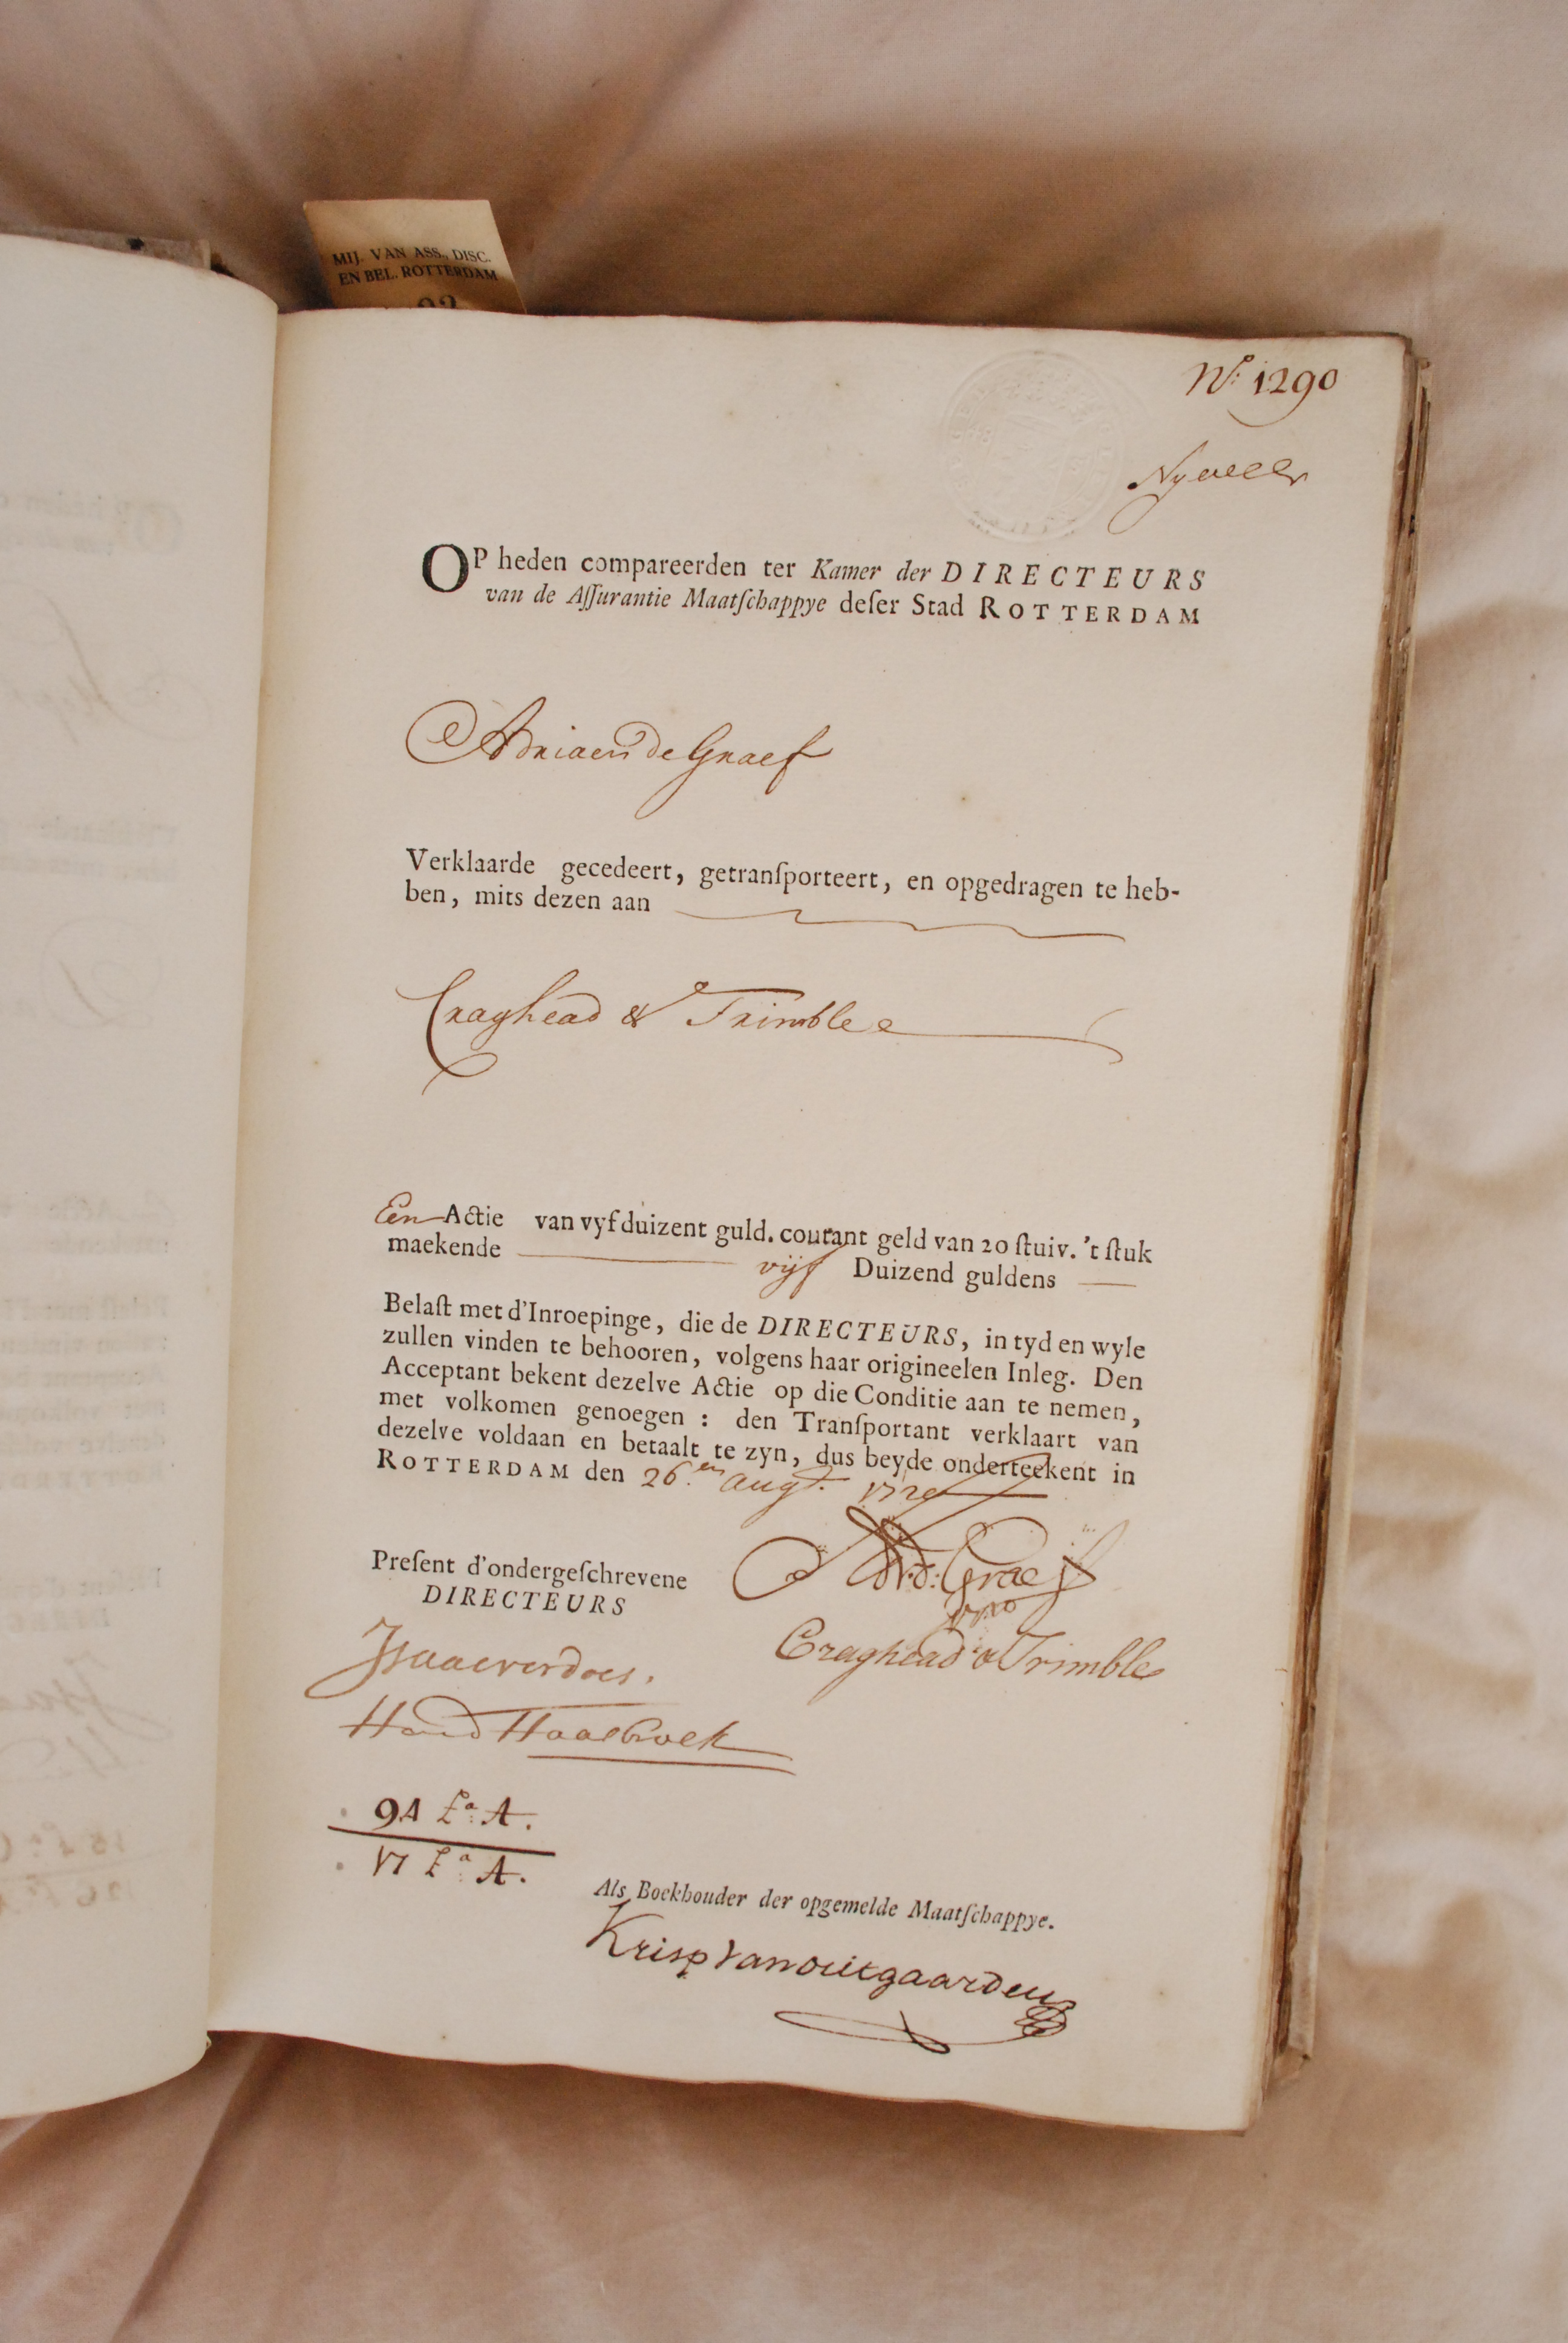 MIJ. VAN ASS., DISC.
EN BEL. ROTTERDAM
No: 1290
OP heden compareerden ter Kamer der DIRECTEURS
van de Aſſurantie Maatſchappye deſer Stad ROTTERDAM
Adriaen de Graef
Verklaarde gecedeert, getranſporteert, en opgedragen te heb-
ben, mits dezen aan
Craghead & Trimble
Een Actie van vyfduizent guld. courant geld van 20 ſtuiv. 't ſtuk
maekende vijf Duizend guldens
Belaſt met d'Inroepinge, die de DIRECTEURS, in tyd en wyle
zullen vinden te behooren, volgens haar origineelen Inleg. Den
Acceptant bekent dezelve Actie op die Conditie aan te nemen,
met volkomen genoegen : den Tranſportant verklaart van
dezelve voldaan en betaalt te zyn, dus beyde onderteekent in
ROTTERDAM den 26.en augt. 1720
Preſent d'ondergeſchrevene
DIRECTEURS
Ad: d: Graef
Craghead & Trimble
94 La: A.
17 La: A.
Als Boekhouder der opgemelde Maatſchappye.
Krisp Van outgaarden